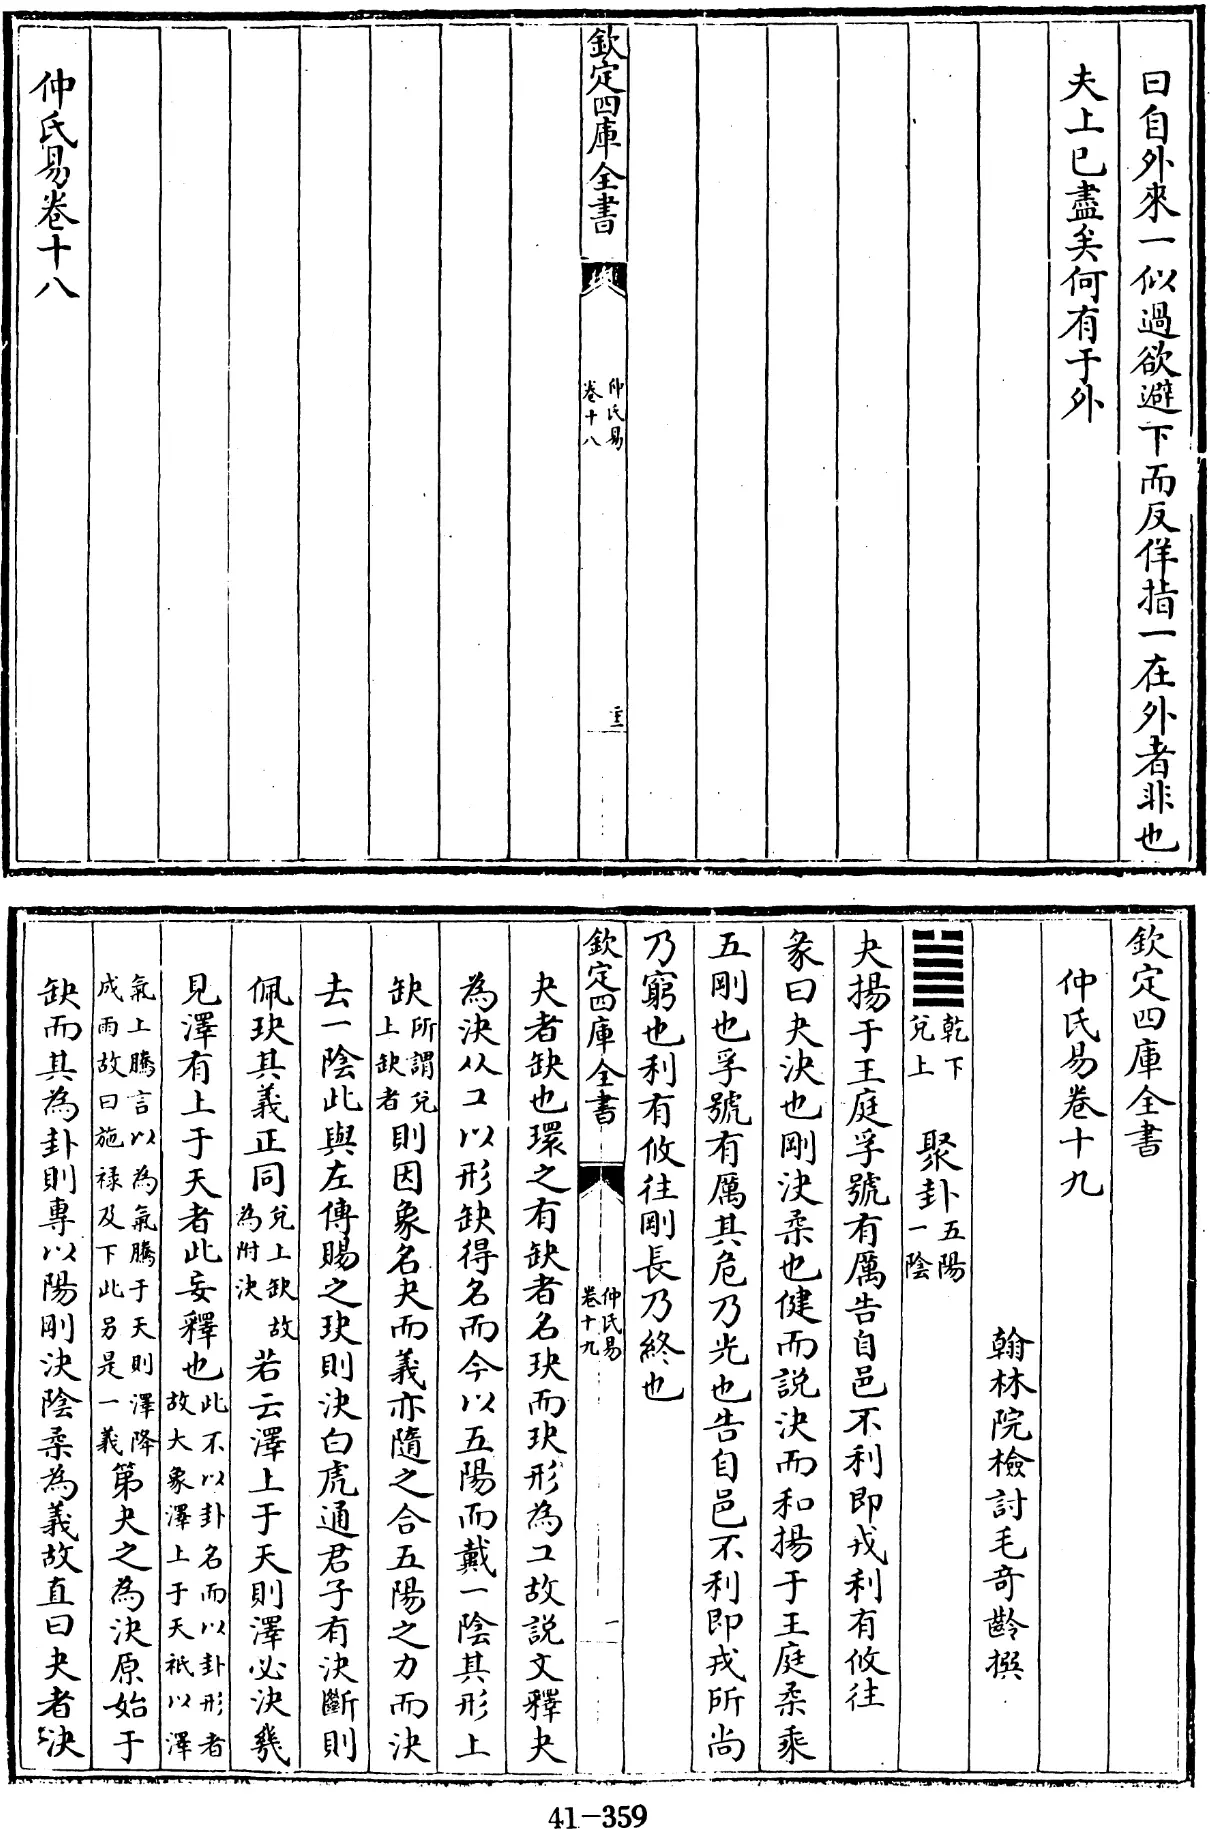 曰自外來一似過欲避下而反佯指一在外者非也
夫上已盡矣何有于外
欽定四庫全書
仲氏易
卷十八
仲氏易卷十八
欽定四庫全書
仲氏易卷十九
翰林院檢討毛奇齡撰
乾下
兌上
聚卦
五陽
一陰
夬揚于王庭孚號有厲告自邑不利即戎利有攸往
彖曰夬決也剛決柔也健而說決而和揚于王庭柔乘
五剛也孚號有厲其危乃光也告自邑不利即戎所尚
乃窮也利有攸往剛長乃終也
欽定四庫全書
仲氏易
卷十九
一
夬者缺也環之有缺者名玦而玦形為コ故説文釋夬
為決从コ以形缺得名而今以五陽而戴一陰其形上
缺所謂兌上缺者則因象名夬而義亦隨之合五陽之力而決
去一陰此與左傳賜之玦則決白虎通君子有決斷則
佩玦其義正同兌上缺故為附決若云澤上于天則澤必決幾
見澤有上于天者此妄釋也此不以卦名而以卦形者故大象澤上于天祇以澤
氣上騰言以為氣騰于天則澤降成雨故曰施祿及下此另是一義第夬之為決原始于
缺而其為卦則專以陽剛決陰柔為義故直曰夬者決
41-359